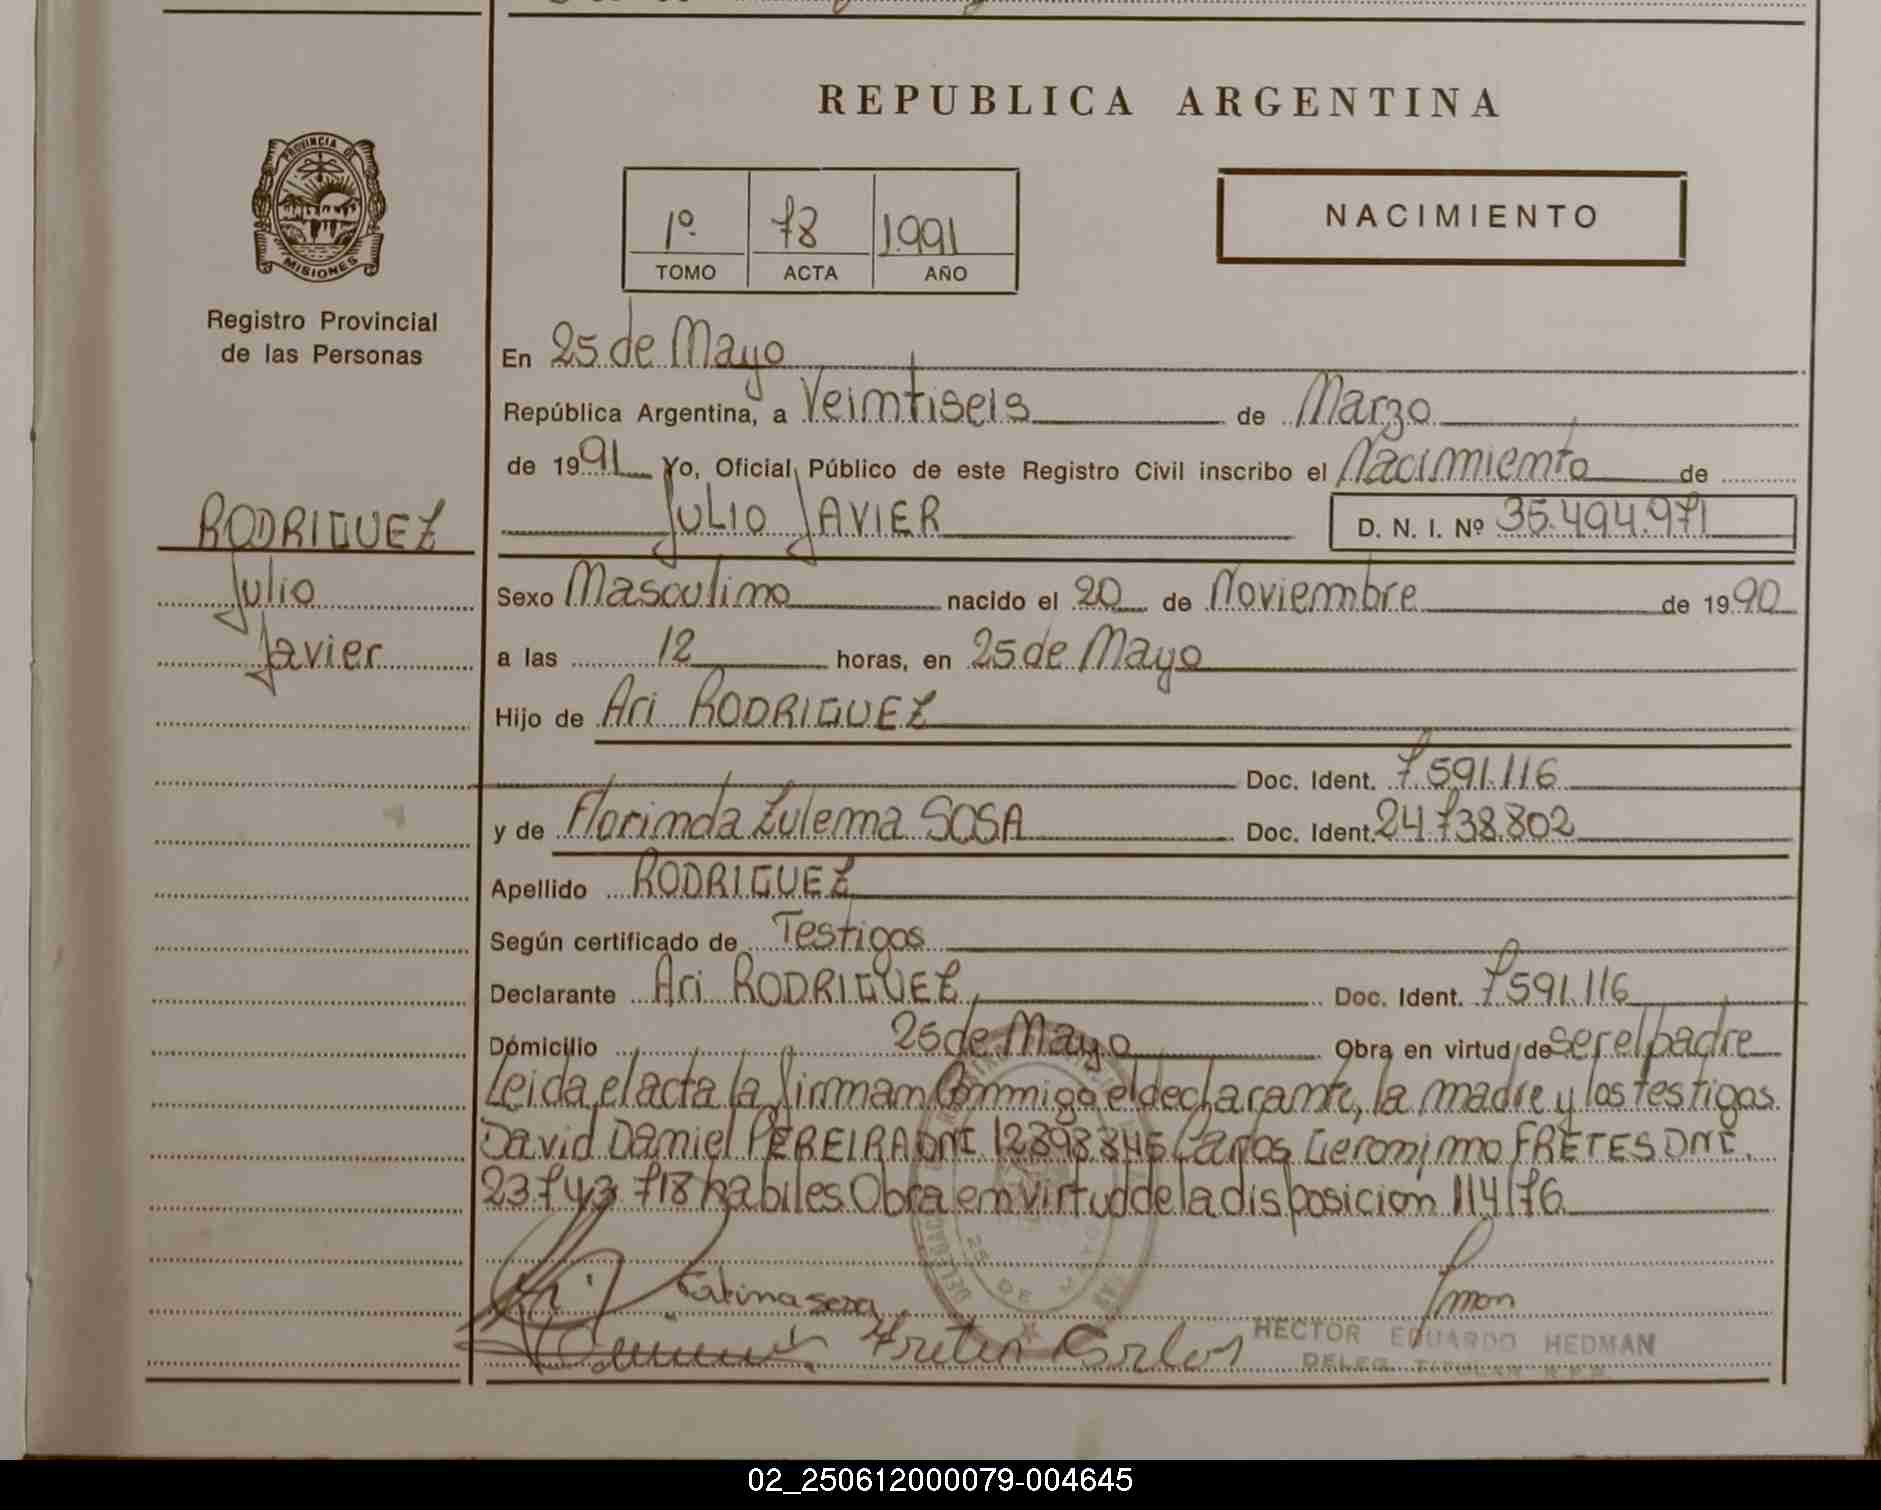 REPUBLICA ARGENTINA
PROVINCIA DE
MISIONES
Registro Provincial
de las Personas
1º 78 1991
TOMO ACTA AÑO
NACIMIENTO
En 25 de Mayo
República Argentina, a Veimtiseis de Marzo
de 1991 Yo, Oficial Público de este Registro Civil inscribo el Nacimiento de
JULIO JAVIER D. N. I. Nº 35.494.971
RODRIGUEZ
Julio
Javier
Sexo Masculino nacido el 20 de Noviembre de 1990
a las 12 horas, en 25 de Mayo
Hijo de Ari RODRIGUEZ
Doc. Ident. 7.591.116
y de Florinda Zulema SOSA Doc. Ident. 24.738.802
Apellido RODRIGUEZ
Según certificado de Testigos
Declarante Ari RODRIGUEZ Doc. Ident. 7.591.116
Domicilio 25 de Mayo Obra en virtud de ser el padre
Leida el acta la firman Conmigo el declarante, la madre y los testigos
David Daniel PEREIRA DNI 12898846 Carlos Geronimo FRETES DNI.
23.743.718 habiles Obra en virtud de la disposicion 114/76
25 DE MAYO
Fretes Carlos
HECTOR EDUARDO HEDMAN
DELEG. TITULAR R.P.P.
02_250612000079-004645